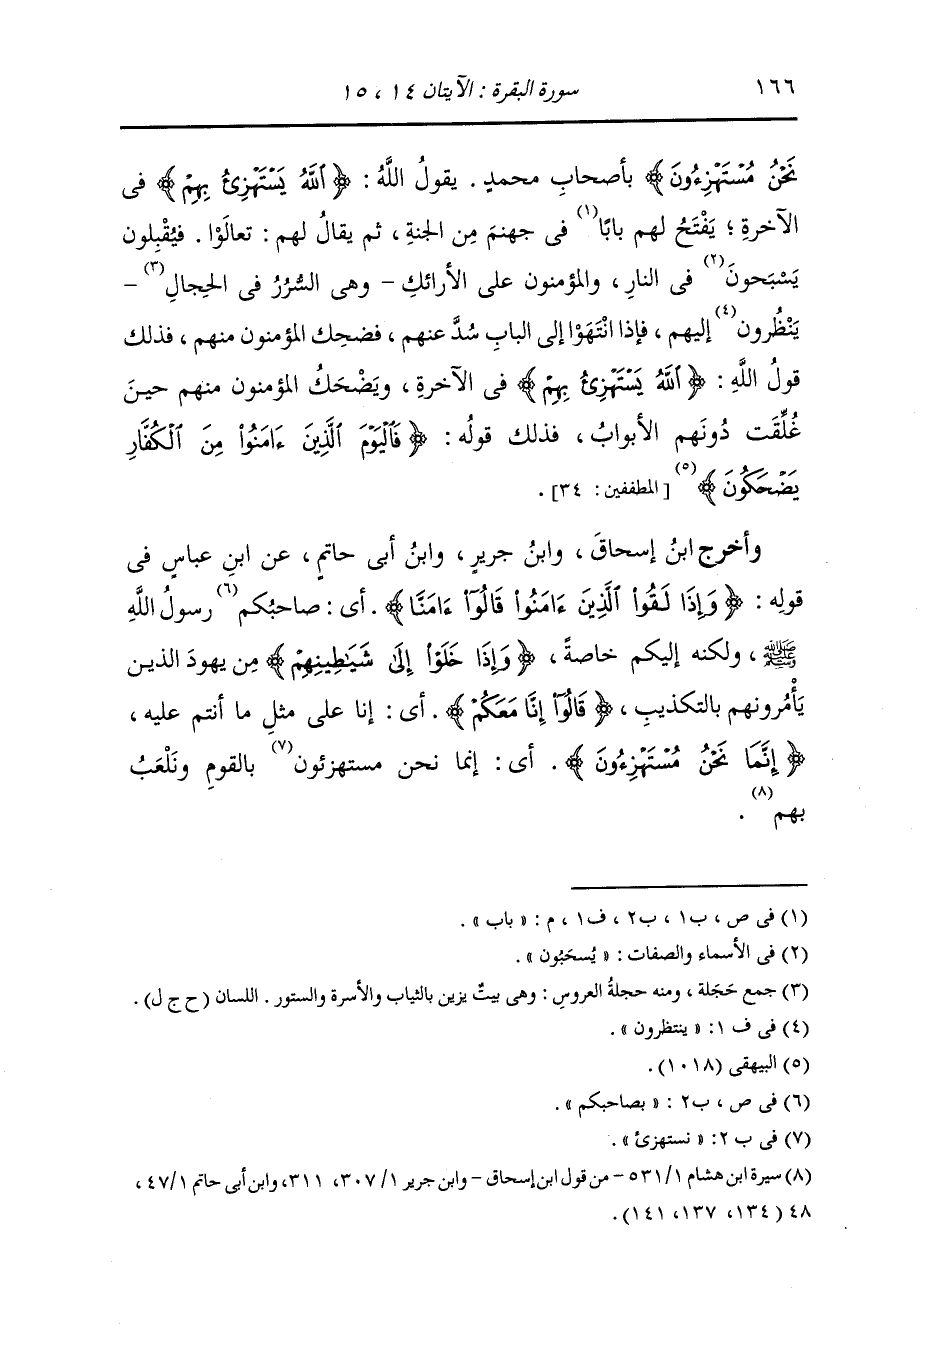 ١٦٦ سورة البقرة : الآيتان ١٤ ، ١٥
نَحْنُ مُسْتَهْزِءُونَ﴾ بأصحابِ محمدٍ . يقولُ اللَّهُ : ﴿ٱللَّهُ يَسْتَهْزِئُ بِهِمْ﴾ فى
الآخرةِ ؛ يَفْتَحُ لهم بابًا(١) فى جهنمَ مِن الجنةِ ، ثم يقالُ لهم : تعالَوْا . فيُقْبِلون
يَسْبَحونَ(٢) فى النارِ ، والمؤمنون على الأرائكِ - وهى السُّرُرُ فى الحِجالِ(٣) -
يَنْظُرون(٤) إليهم ، فإذا انْتَهَوْا إلى البابِ سُدَّ عنهم ، فضحِك المؤمنون منهم ، فذلك
قولُ اللَّهِ : ﴿ٱللَّهُ يَسْتَهْزِئُ بِهِمْ﴾ فى الآخرةِ ، ويَضْحَكُ المؤمنون منهم حينَ
غُلِّقَت دُونَهم الأبوابُ ، فذلك قولُه : ﴿فَٱلْيَوْمَ ٱلَّذِينَ ءَامَنُوا۟ مِنَ ٱلْكُفَّارِ
يَضْحَكُونَ﴾(٥) [المطففين : ٣٤] .
وأخرج ابنُ إسحاقَ ، وابنُ جريرٍ ، وابنُ أبى حاتمٍ ، عن ابنِ عباسٍ فى
قولِه : ﴿وَإِذَا لَقُوا۟ ٱلَّذِينَ ءَامَنُوا۟ قَالُوٓا۟ ءَامَنَّا﴾ . أى : صاحبُكم(٦) رسولُ اللَّهِ
ﷺ ، ولكنه إليكم خاصةً ، ﴿وَإِذَا خَلَوْا۟ إِلَىٰ شَيَٰطِينِهِمْ﴾ مِن يهودَ الذين
يَأْمُرونهم بالتكذيبِ ، ﴿قَالُوٓا۟ إِنَّا مَعَكُمْ﴾ . أى : إنا على مثلِ ما أنتم عليه ،
﴿إِنَّمَا نَحْنُ مُسْتَهْزِءُونَ﴾ . أى : إنما نحن مستهزئون(٧) بالقومِ ونَلْعَبُ
بهم(٨) .
(١) فى ص ، ب١ ، ب٢ ، ف١ ، م : « باب » .
(٢) فى الأسماء والصفات : « يُسحَبُون » .
(٣) جمع حَجَلة ، ومنه حجلةُ العروسِ : وهى بيتٌ يزين بالثياب والأسرة والستور . اللسان (ح ج ل) .
(٤) فى ف ١: « ينتظرون » .
(٥) البيهقى (١٠١٨) .
(٦) فى ص ، ب٢ : « بصاحبكم » .
(٧) فى ب ٢: « نستهزئ » .
(٨) سيرة ابن هشام ٥٣١/١ - من قول ابن إسحاق - وابن جرير ١/ ٣٠٧، ٣١١، وابن أبى حاتم ٤٧/١ ،
٤٨ (١٣٤، ١٣٧، ١٤١) .